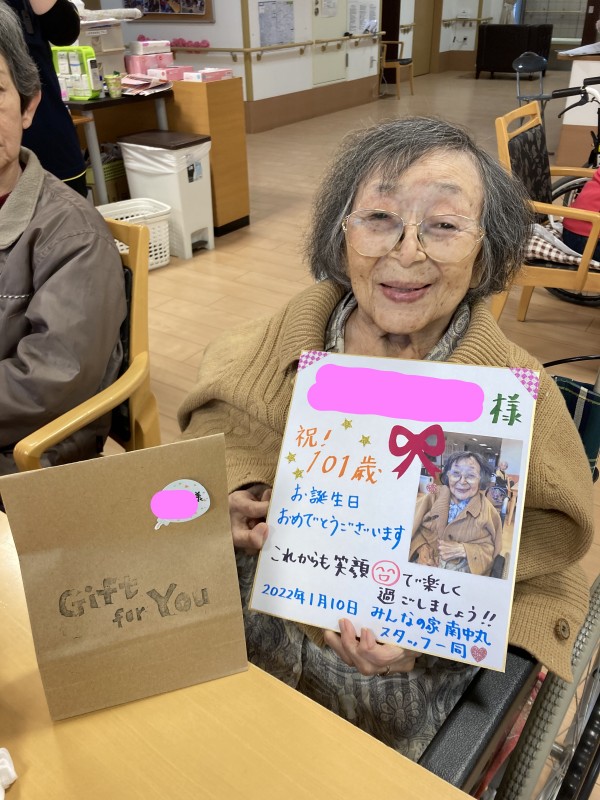 様
祝!
101歳
お誕生日
おめでとうございます
これからも笑顔で楽しく
過ごしましょう!!
2022年1月10日 みんなの家 南中丸
スタッフ一同
様
Gift
for You